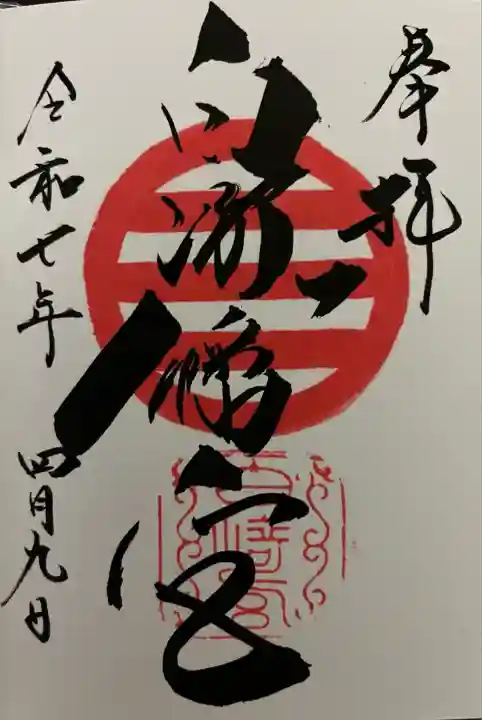 奉拝
白崎八幡宮
令和七年 四月九日